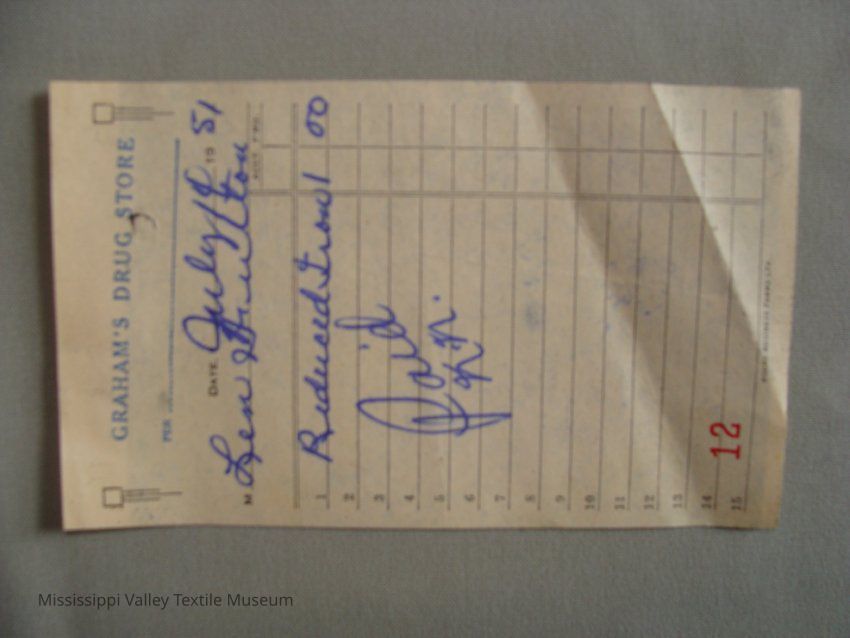 GRAHAM'S DRUG STORE
PER
DATE July 18 19 51
M Len
ACCT. FWD.
1 Reduced Iron 1 00
2
3 Paid
4
5
6
7
8
9
10
11
12
13
14
15
12
Mississippi Valley Textile Museum